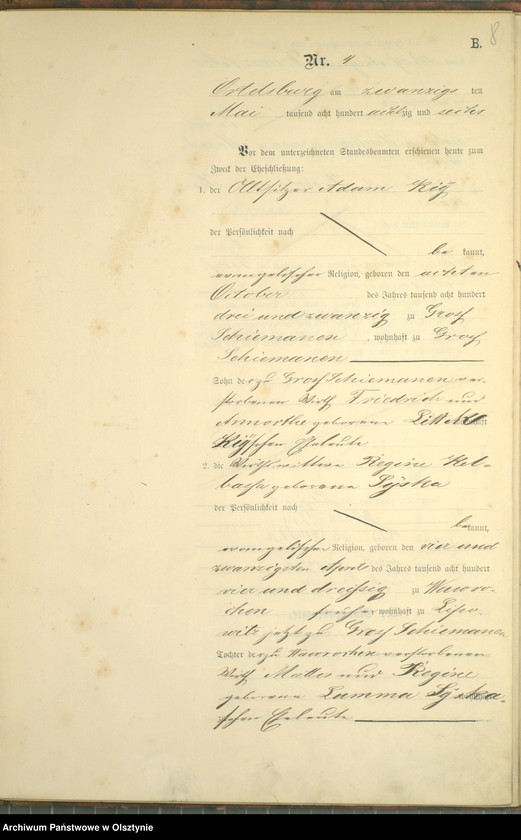 B. 8
Nr. 4
Ortelsburg am zwanzigs ten
Mai tausend acht hundert achtzig und sechs
Vor dem unterzeichneten Standesbeamten erschienen heute zum
Zweck der Eheschließung:
1. der Altsitzer Adam
der Persönlichkeit nach
be kannt,
evangelischer Religion, geboren den achten
October des Jahres tausend acht hundert
drei und zwanzig zu Gross
Schiemanen, wohnhaft zu Gross
Schiemanen
Sohn des zu Gross Schiemanen ver-
storbenen Wirth Friedrich und
Annorthe geborene
schen Eheleute
2. die Wirthswittwe Regine Kel-
bassa geborene Lyska
der Persönlichkeit nach
be kannt,
evangelischer Religion, geboren den vier und
zwanzigsten April des Jahres tausend acht hundert
vier und dreissig zu Waworo-
chen früher wohnhaft zu Lipo-
witz jetzt zu Gross Schiemanen
Tochter des zu Waworochen verstorbenen
Wirth Mattes und Regine
geborene Lamma Lyska-
schen Eheleute
Archiwum Państwowe w Olsztynie